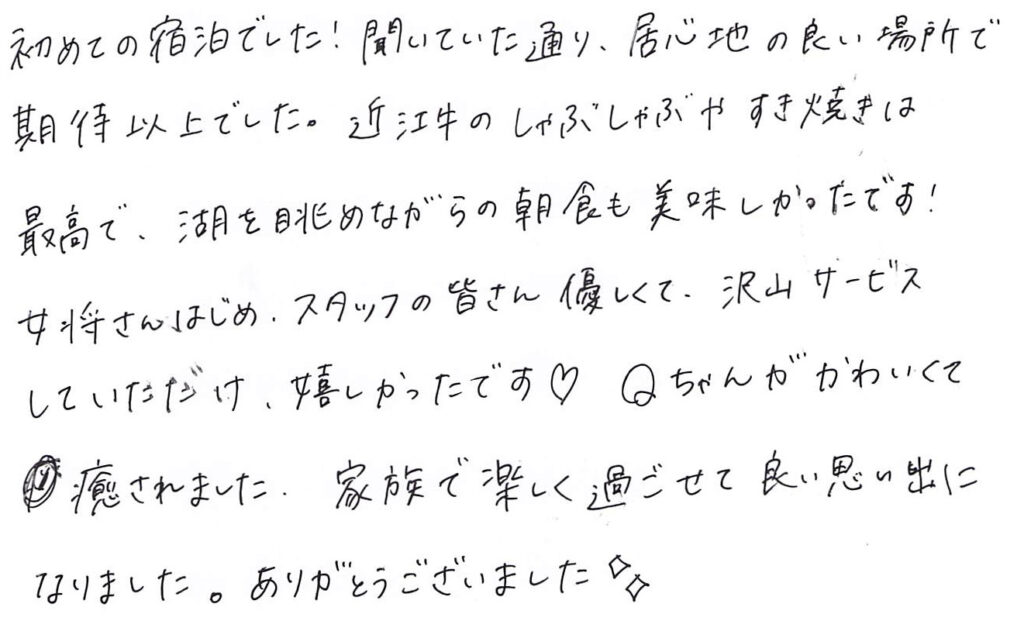 初めての宿泊でした！聞いていた通り、居心地の良い場所で
期待以上でした。近江牛のしゃぶしゃぶやすき焼きは
最高で、湖を眺めながらの朝食も美味しかったです！
女将さんはじめ、スタッフの皆さん優しくて、沢山サービス
していただけ、嬉しかったです♡ Qちゃんがかわいくて
癒されました。家族で楽しく過ごせて良い思い出に
なりました。ありがとうございました✧